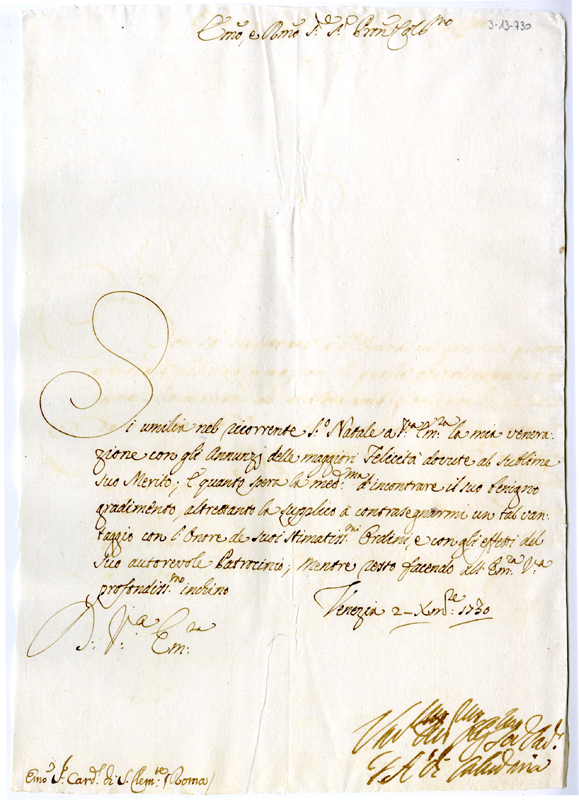 Emo, e Rmo Sre Sre Pron Colmo
3-13-730
Si umilia nel ricorrente S.o Natale a V.ra Em.za la mia venera:
zione con gli Annunzj delle maggiori Felicità dovute al sublime
suo Merito; E quanto spera la med.ma d'incontrare il suo benigno
gradimento, altretanto la supplico a contrasegnarmi un tal van:
taggio con l'Onore de suoi stimatiss.mi Ordini, e con gli effetti del
suo autorevole Patrocinio; Mentre resto facendo all'Em.za V.ra
profondiss.mo inchino
Venezia 2 Xmbre 1730
D: V.ra Em:za
Emo Sr Card.l di S. Clem.te Roma/